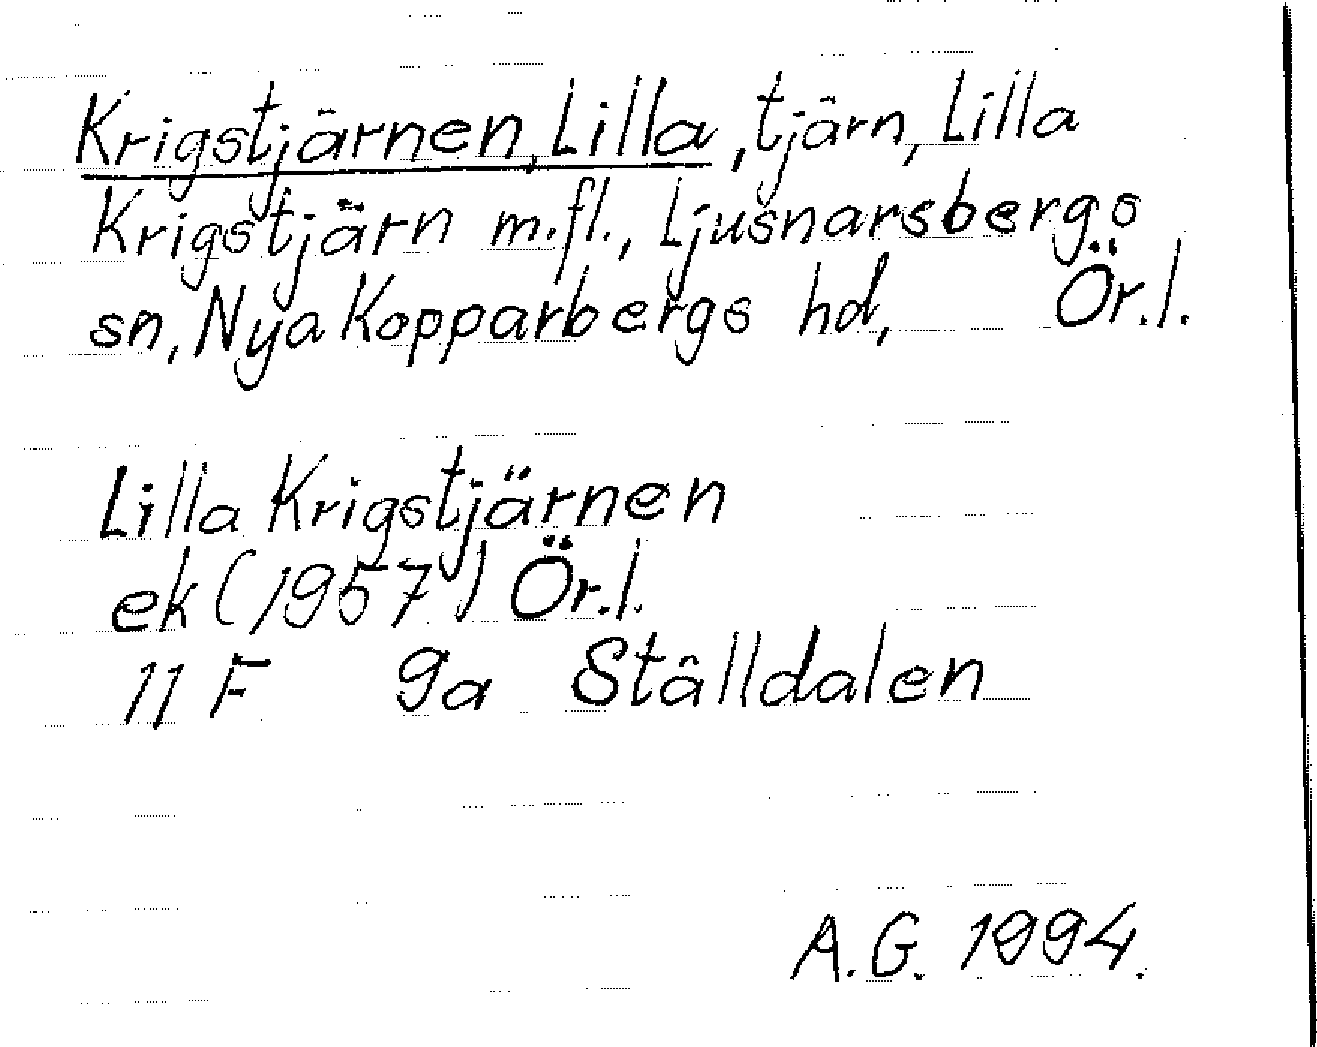 Krigstjärnen, Lilla, tjärn, Lilla
Krigstjärn m.fl., Ljusnarsbergs
sn, Nya Kopparbergs hd, Ör.l.
Lilla Krigstjärnen
ek (1957) Ör.l.
11 F 9a Ställdalen
A.G. 1994.